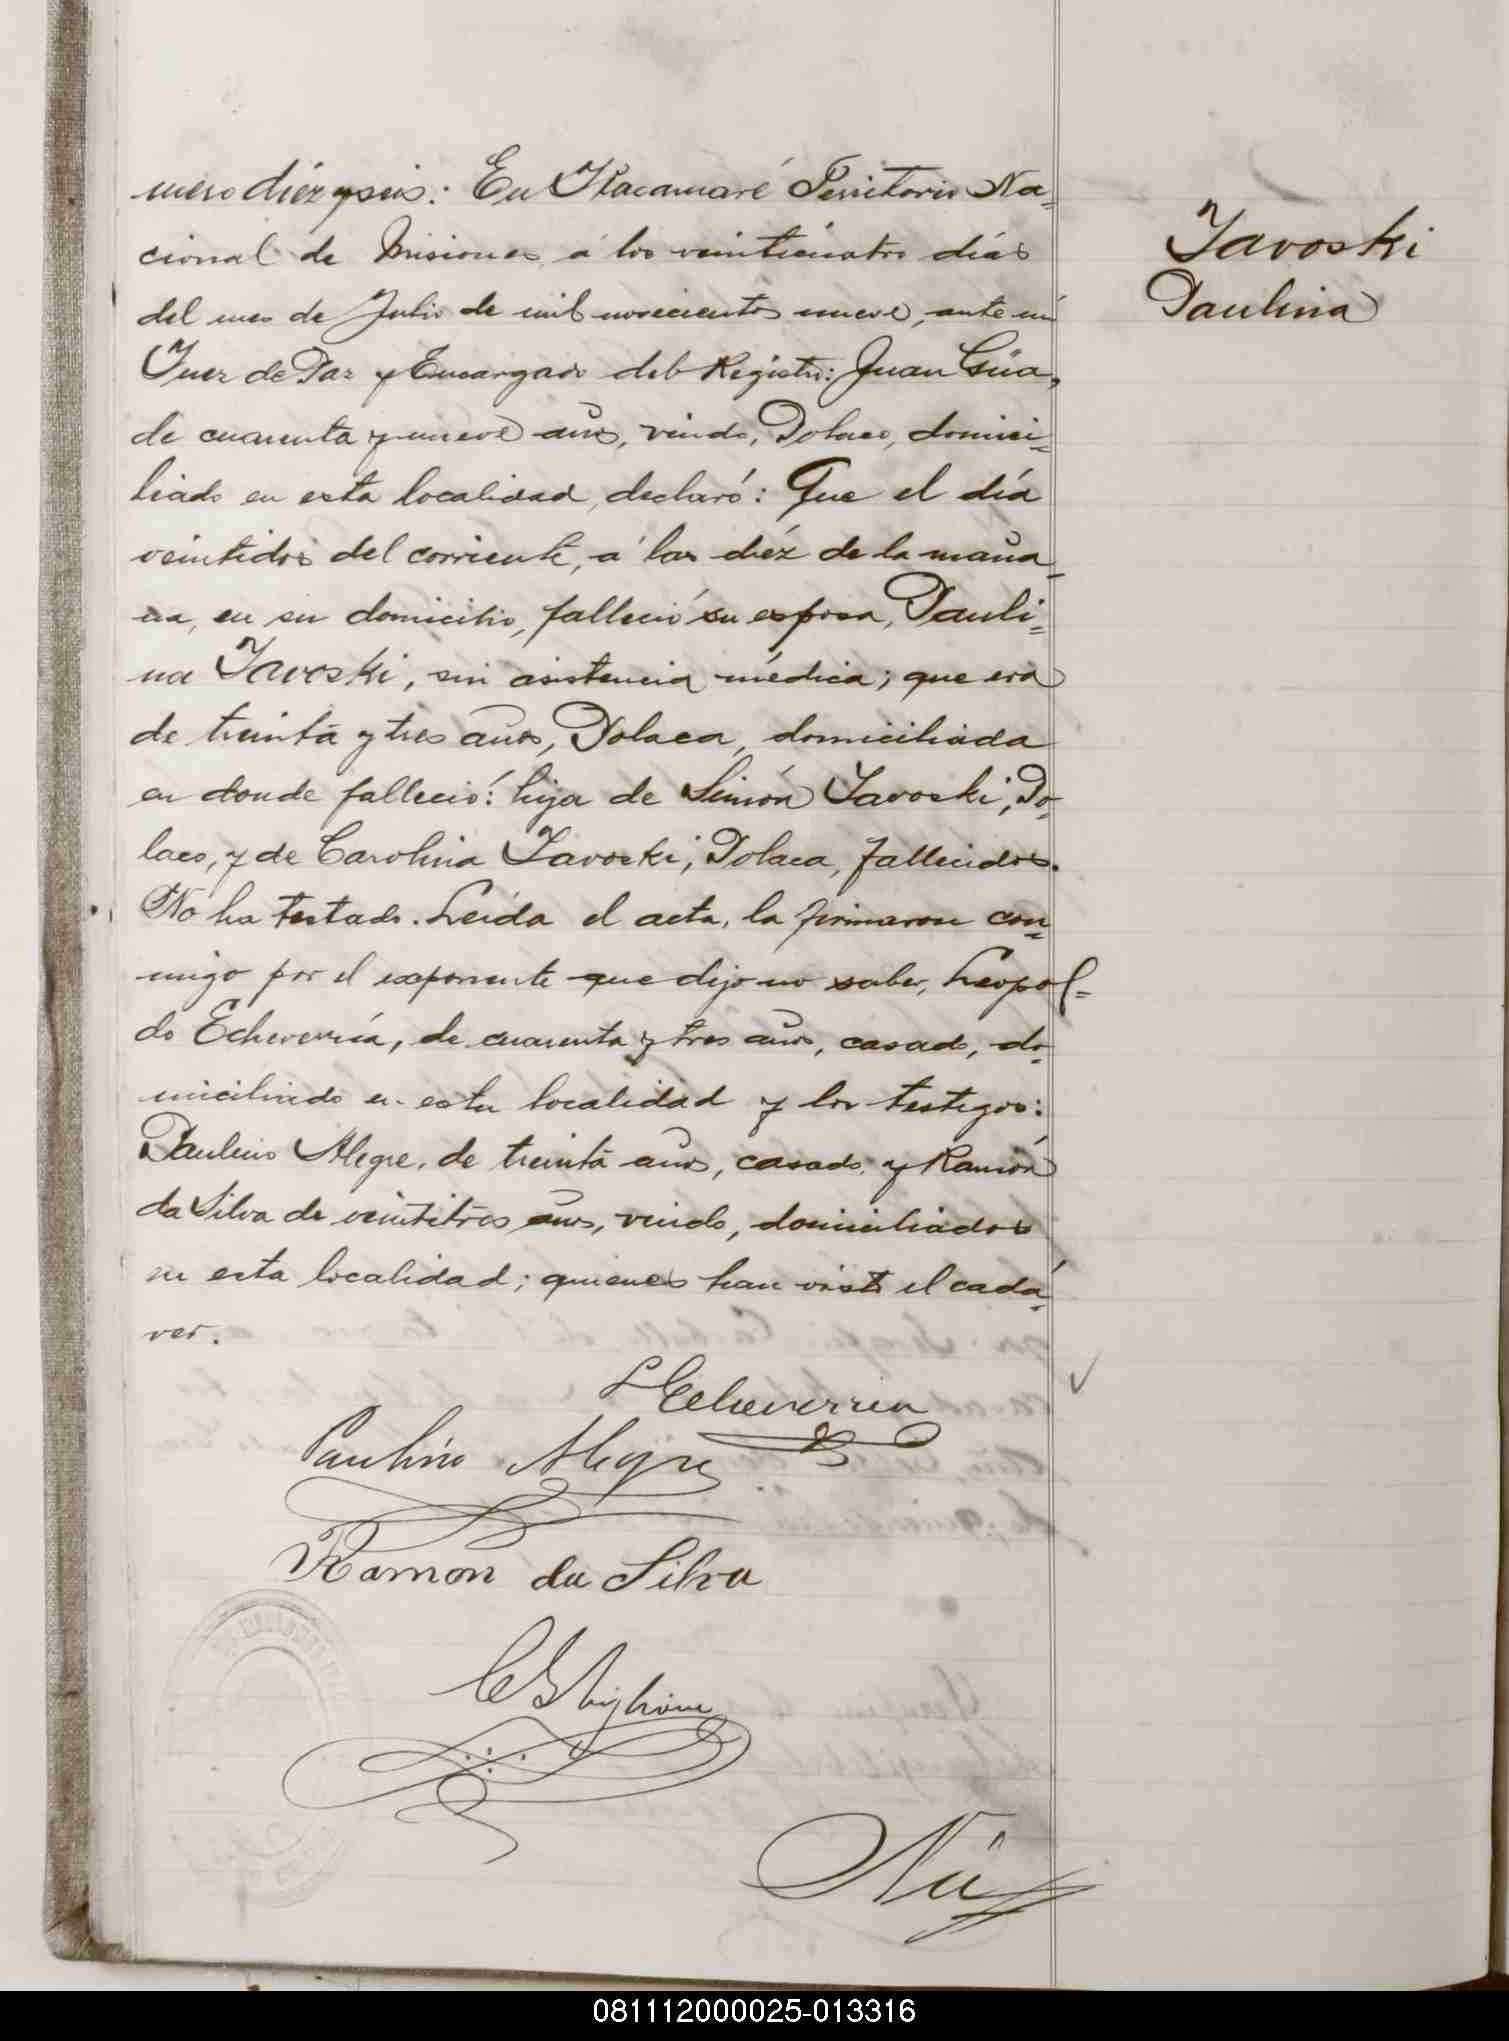 mero diéz y seis: En Itacamaré Territorio Na=
cional de Misiones á los veinticuatro días
del mes de Julio de mil novecientos nueve, ante mí
Juez de Paz y Encargado del Registro: Juan Güa,
de cuarenta y nueve años, viudo, Polaco, domici=
liado en esta localidad, declaró: Que el día
veintidos del corriente, á las diéz de la maña=
na, en su domicilio, falleció su esposa, Pauli=
na Javoski, sin asistencia médica; que era
de treinta y tres años, Polaca, domiciliada
en donde falleció: hija de Simón Javoski, Po=
laco, y de Carolina Javoski, Polaca, fallecidos.
No ha testado. Leída el acta, la firmaron con=
migo por el exponente que dijo no saber, Leopol=
do Echeverría, de cuarenta y tres años, casado, do=
miciliado en esta localidad y los testigos:
Paulino Alegre, de treinta años, casado, y Ramón
da Silva de veintitres años, viudo, domiciliados
en esta localidad; quienes han visto el cadá=
ver.
LEcheverria
Paulino Alegre
Ramon da Silva
Nú
Javoski
Paulina
081112000025-013316